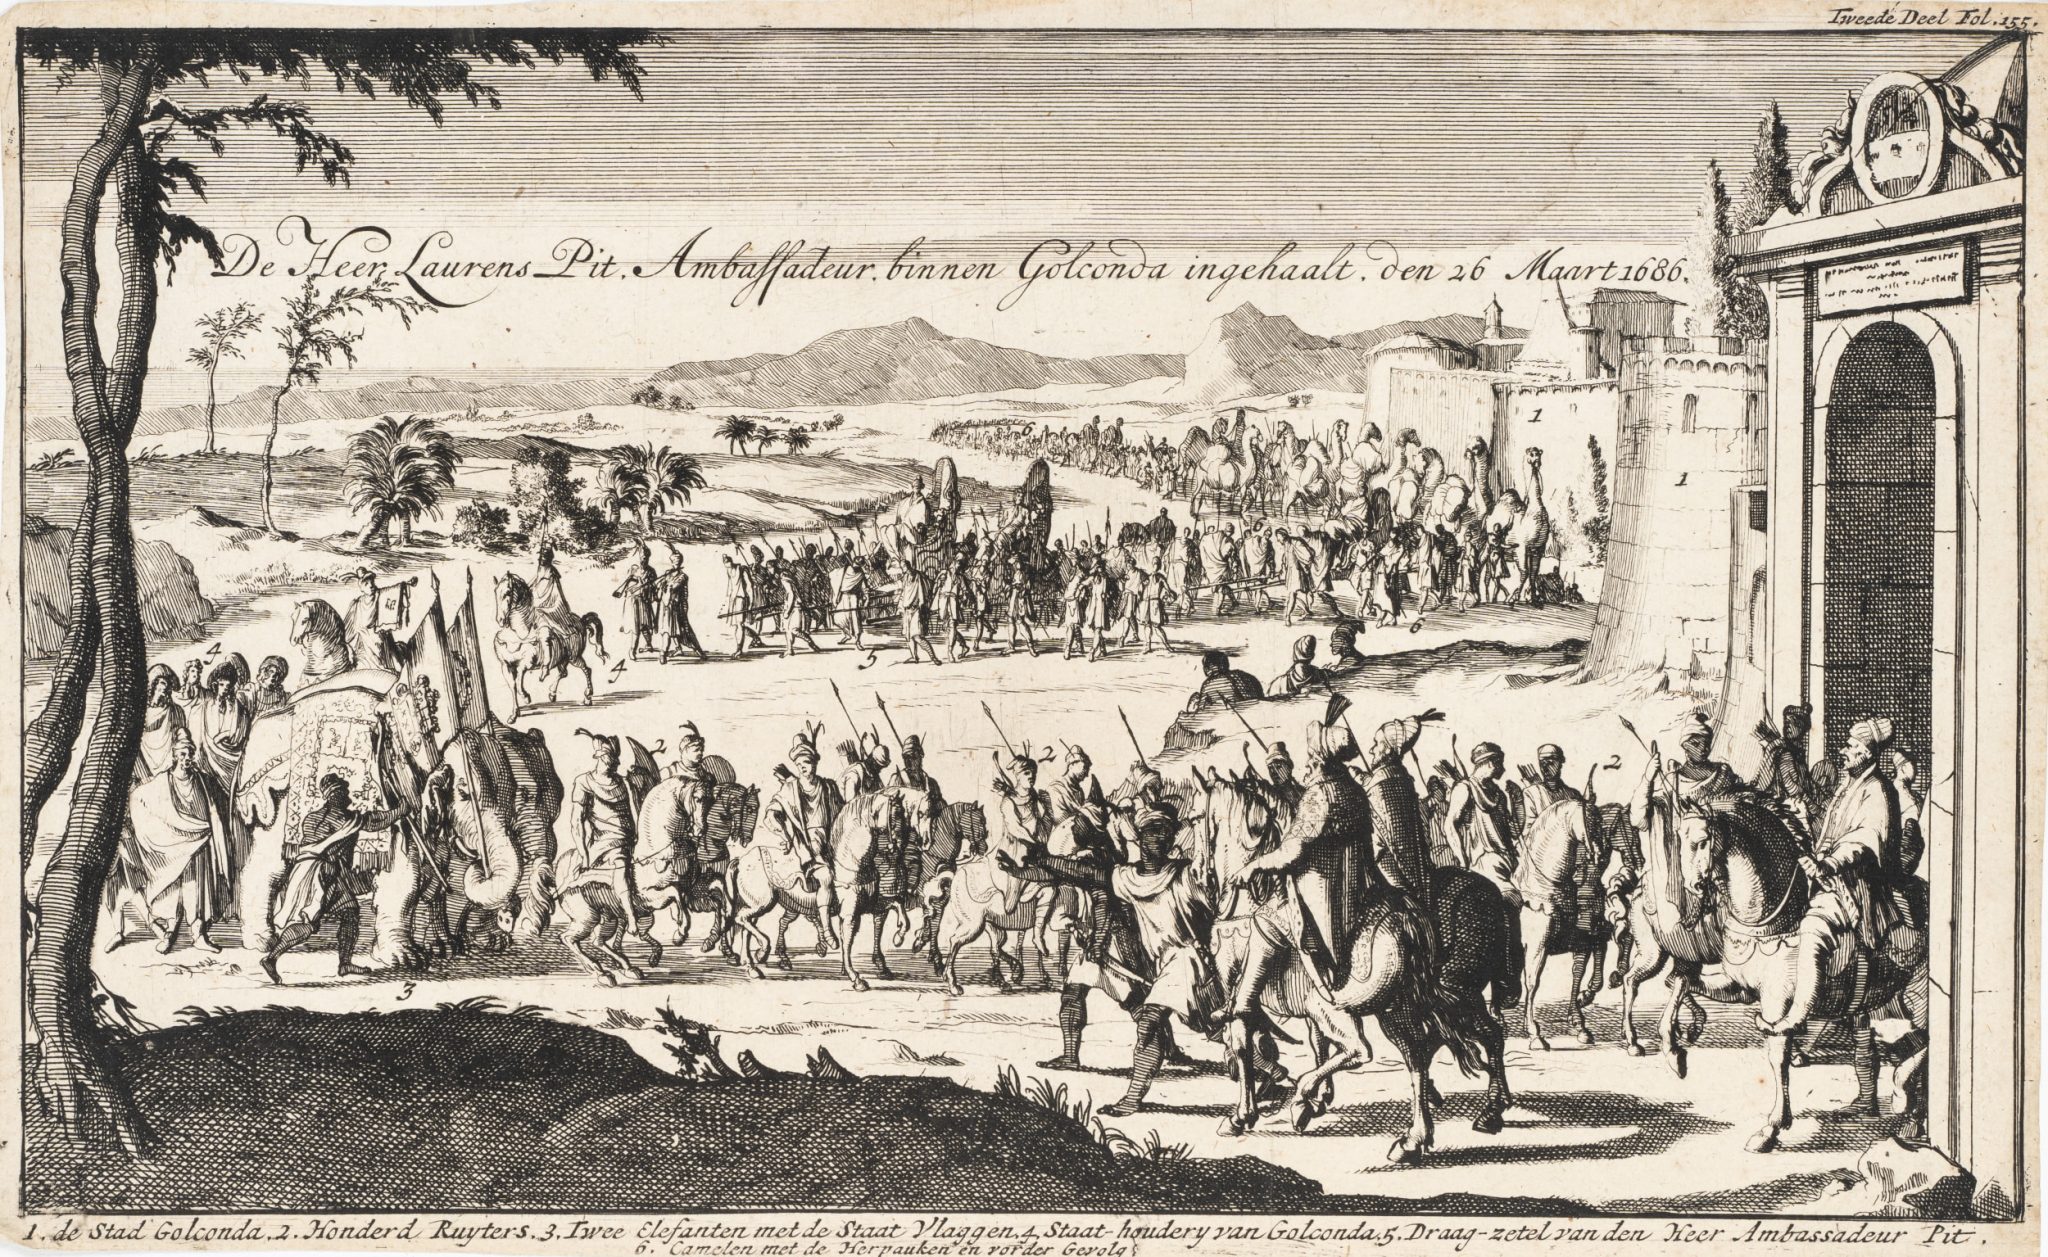 Tweede Deel Fol. 155.
De Heer Laurens Pit. Ambassadeur. binnen Golconda ingehaalt. den 26 Maart 1686.
1. de Stad Golconda. 2. Honderd Ruyters. 3. Twee Elefanten met de Staat Vlaggen. 4. Staat-houdery van Golconda. 5. Draag-zetel van den Heer Ambassadeur Pit.
6. Camelen met de Herpauken en vorder Gevolg
6
1
1
4
5
4
6
2
2
2
3